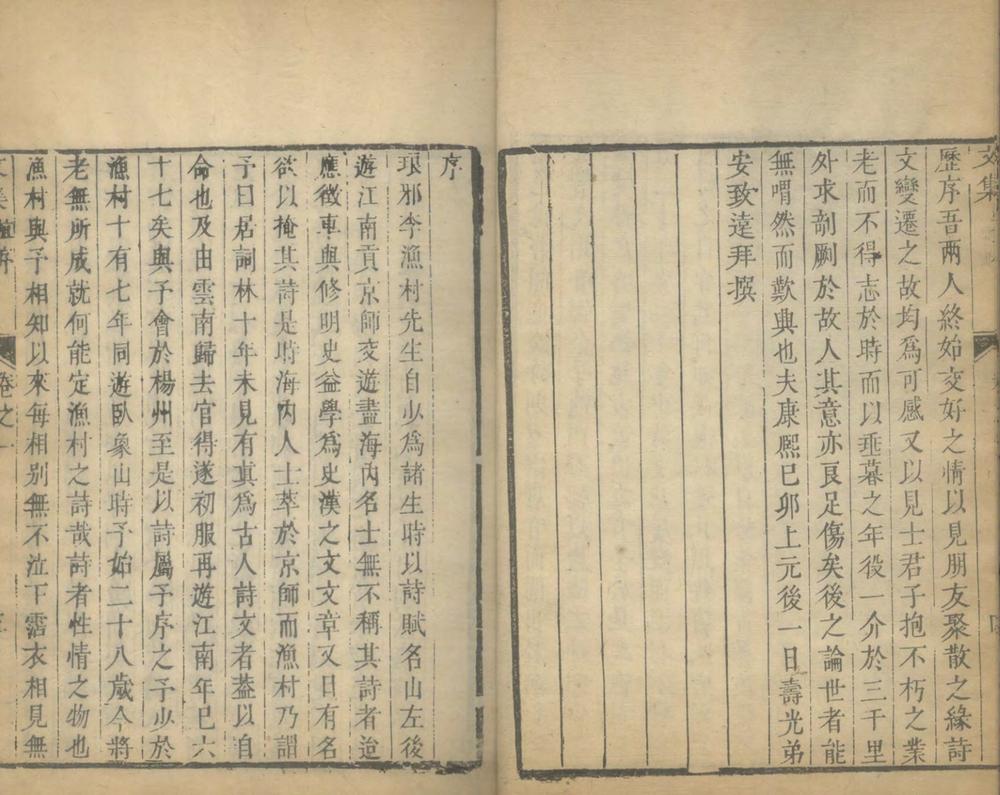 文集
歷序吾兩人終始交好之情以見朋友聚散之緣詩
文變遷之故均爲可感又以見士君子抱不朽之業
老而不得志於時而以垂暮之年役一介於三千里
外求剞劂於故人其意亦良足傷矣後之論世者能
無喟然而歎興也夫康熙已卯上元後一日壽光弟
安致遠拜撰
序
琅邪李漁村先生自少爲諸生時以詩賦名山左後
遊江南貢京師交遊盡海內名士無不稱其詩者迨
應徵車與修明史益學爲史漢之文文章又日有名
欲以掩其詩是時海內人士萃於京師而漁村乃謂
予曰居詞林十年未見有眞爲古人詩文者葢以自
命也及由雲南歸去官得遂初服再遊江南年已六
十七矣與予會於楊州至是以詩屬予序之予少於
漁村十有七年同遊臥象山時予始二十八歲今將
老無所成就何能定漁村之詩哉詩者性情之物也
漁村與予相知以來每相別無不泣下霑衣相見無
卷之一